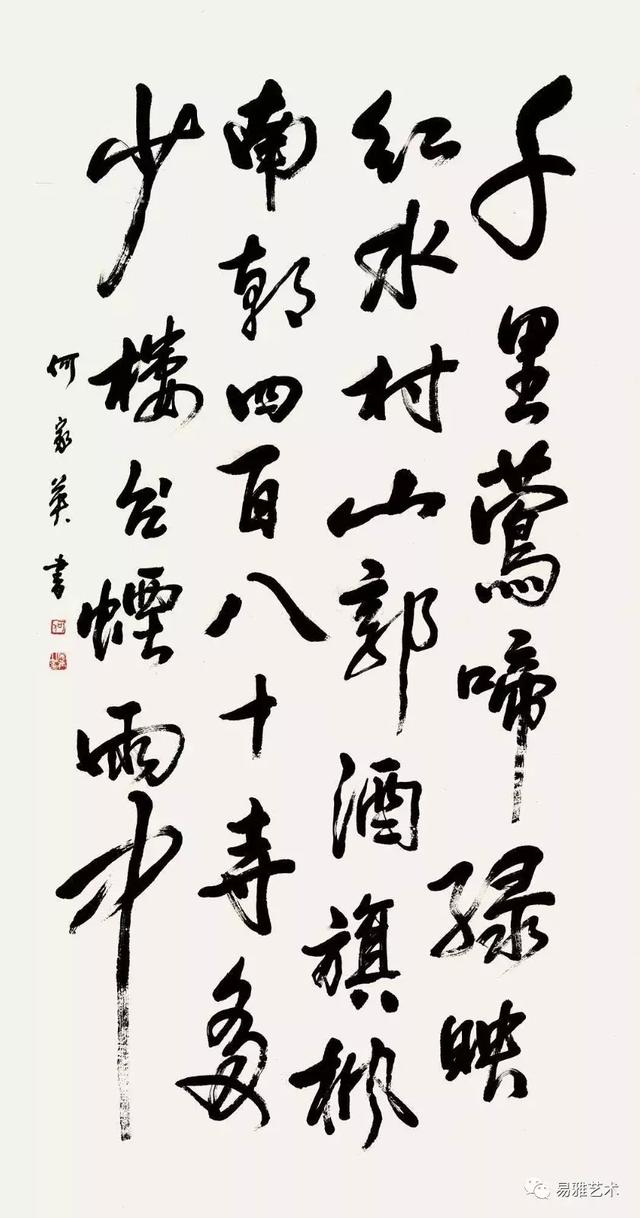 千里莺啼绿映
红水村山郭酒旗
南朝四百八十寺多
少樓台煙雨中
何家英書
何
易雅艺术